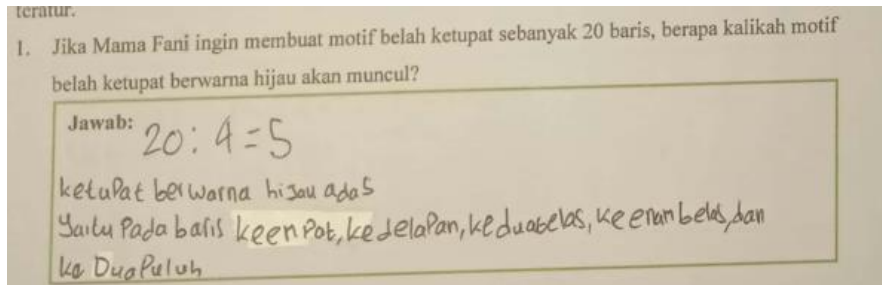 teratur.
1. Jika Mama Fani ingin membuat motif belah ketupat sebanyak 20 baris, berapa kalikah motif
belah ketupat berwarna hijau akan muncul?
Jawab: 20 : 4 = 5
ketupat berwarna hijau ada 5
Yaitu Pada baris keenpot, kedelapan, keduabelas, keenambelas, dan
ke Dua Puluh